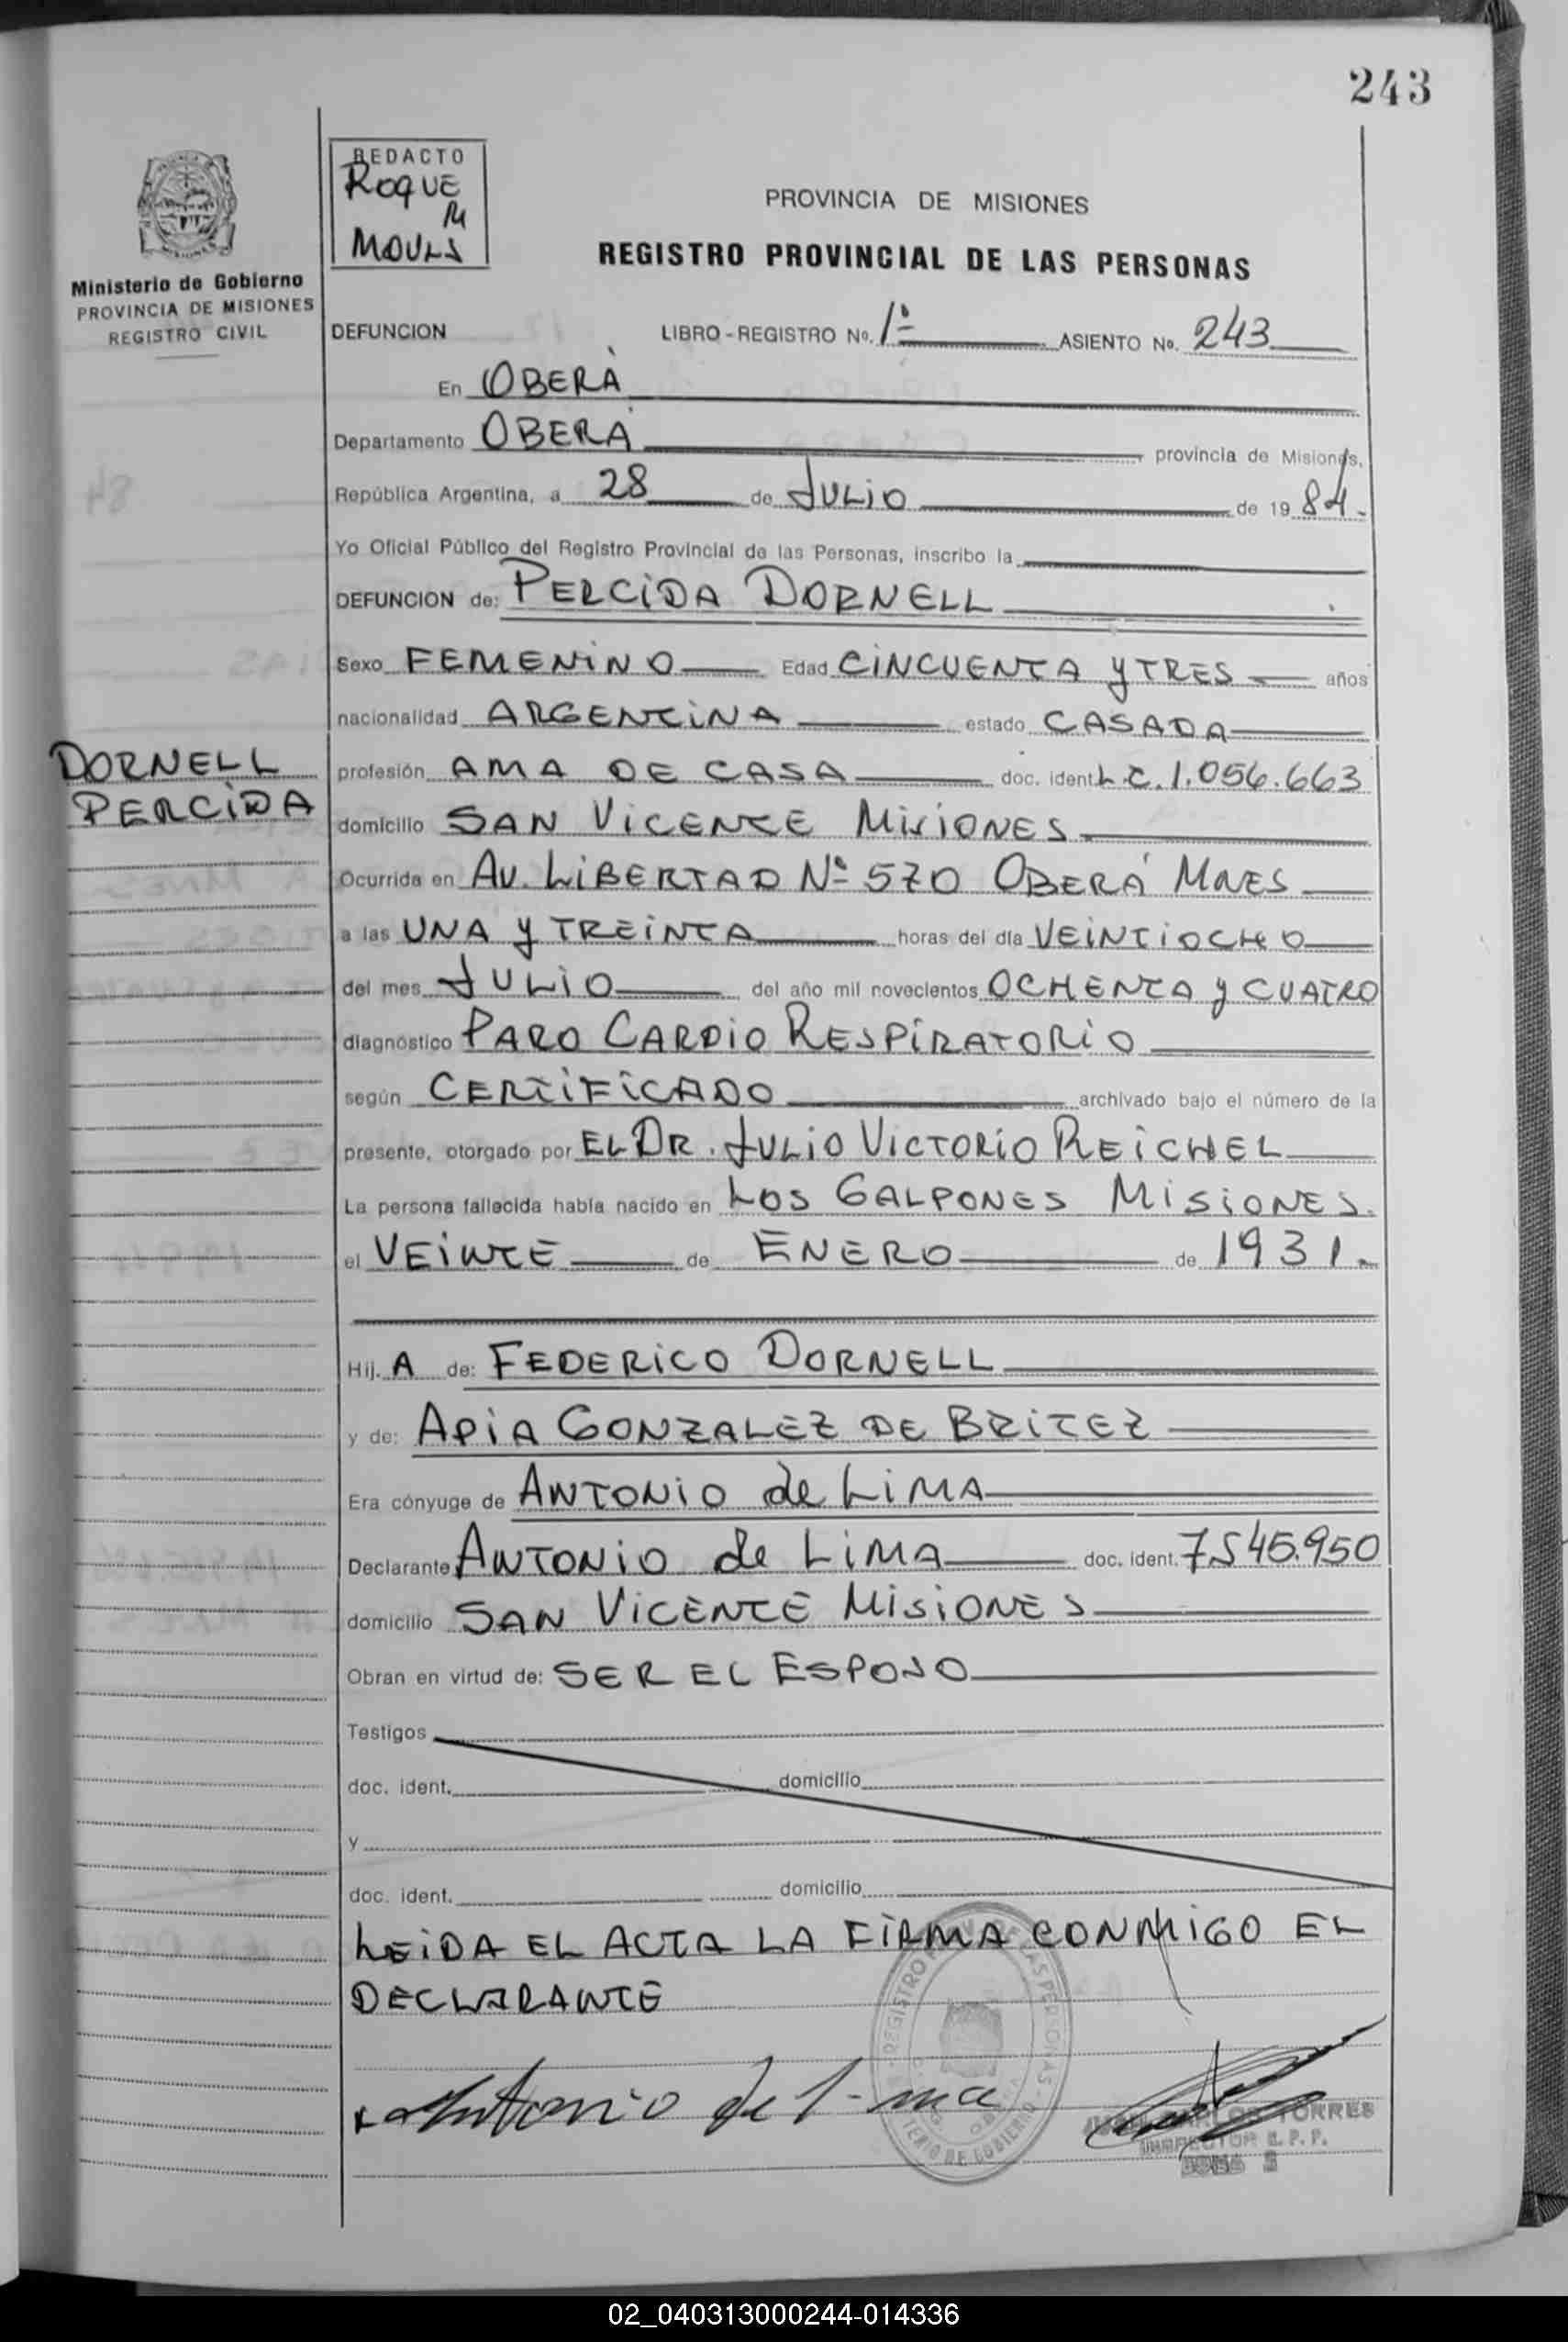 243
REDACTO
ROQUE
M
Ministerio de Gobierno
PROVINCIA DE MISIONES
REGISTRO CIVIL
PROVINCIA DE MISIONES
REGISTRO PROVINCIAL DE LAS PERSONAS
DEFUNCION LIBRO - REGISTRO No. 1º ASIENTO No. 243
En OBERÁ
Departamento OBERÁ provincia de Misiones,
República Argentina, a 28 de JULIO de 19 84.
Yo Oficial Público del Registro Provincial de las Personas, inscribo la
DEFUNCION de: PERCIDA DORNELL
Sexo FEMENINO Edad CINCUENTA Y TRES años
nacionalidad ARGENTINA estado CASADA
DORNELL
PERCIDA
profesión AMA DE CASA doc. ident. L.C. 1.056.663
domicilio SAN VICENTE MISIONES
Ocurrida en AV. LIBERTAD Nº 570 OBERÁ MNES
a las UNA Y TREINTA horas del día VEINTIOCHO
del mes JULIO del año mil novecientos OCHENTA Y CUATRO
diagnóstico PARO CARDIO RESPIRATORIO
según CERTIFICADO archivado bajo el número de la
presente, otorgado por EL DR. JULIO VICTORIO REICHEL
La persona fallecida había nacido en LOS GALPONES MISIONES.
el VEINTE de ENERO de 1931.
Hij. A de: FEDERICO DORNELL
y de: APIA GONZALEZ DE BRITEZ
Era cónyuge de ANTONIO de LIMA
Declarante ANTONIO de LIMA doc. ident. 7545.950
domicilio SAN VICENTE MISIONES
Obran en virtud de: SER EL ESPOSO
Testigos
doc. ident. domicilio
y
doc. ident. domicilio
LEIDA EL ACTA LA FIRMA CONMIGO EL
DECLARANTE
Antonio de lima
CARLOS TORRES
INSPECTOR R. P. P.
02_040313000244-014336